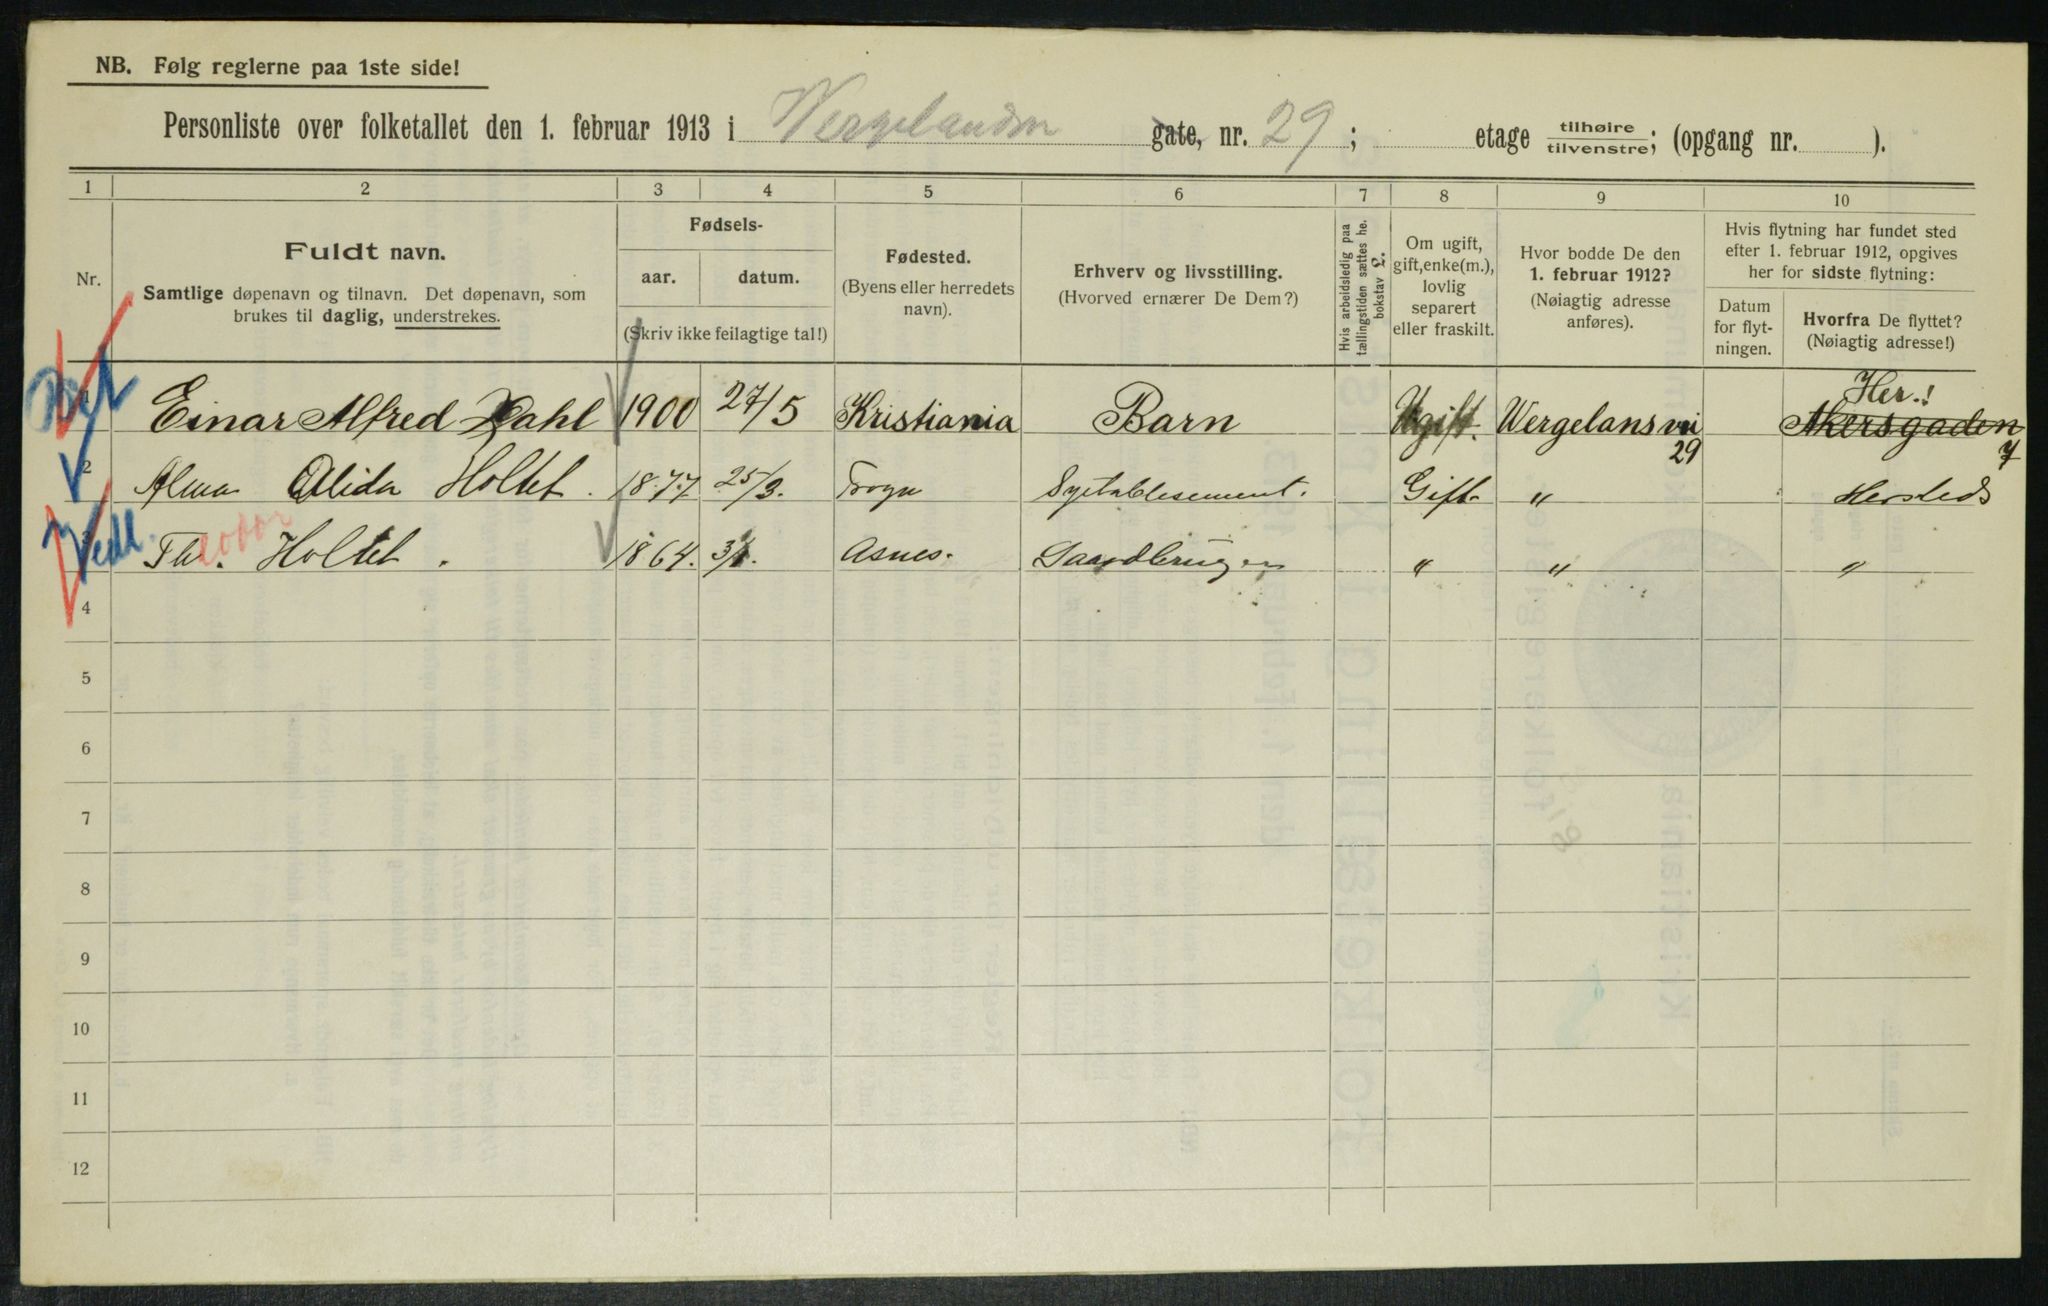 NB. Følg reglerne paa 1ste side!
Personliste over folketallet den 1. februar 1913 i Wergelandsv gate, nr. 29; etage tilhøire tilvenstre; (opgang nr. ).
1 2 3 4 5 6 7 8 9 10
Nr.
Fuldt navn.
Samtlige døpenavn og tilnavn. Det døpenavn, som
brukes til daglig, understrekes.
Fødsels-
aar. datum.
(Skriv ikke feilagtige tal!)
Fødested.
(Byens eller herredets
navn).
Erhverv og livsstilling.
(Hvorved ernærer De Dem?)
Hvis arbeidsledig paa
tællingstiden sættes he.
bokstav L.
Om ugift,
gift,enke(m.),
lovlig
separert
eller fraskilt.
Hvor bodde De den
1. februar 1912?
(Nøiagtig adresse
anføres).
Hvis flytning har fundet sted
efter 1. februar 1912, opgives
her for sidste flytning:
Datum
for flyt-
ningen.
Hvorfra De flyttet?
(Nøiagtig adresse!)
Her.!
1 Einar Alfred Dahl 1900 27/5 Kristiania Barn Ugift. Wergelansvei 29 Akersgaden 7
2 Alma Alida Holtet. 1877 25/3. Trogn Syetablesement. Gift " Hersteds
Vedl.
3 Th. Holtet. 1864. Asnes. Gaardbruger " " "
4
5
6
7
8
9
10
11
12